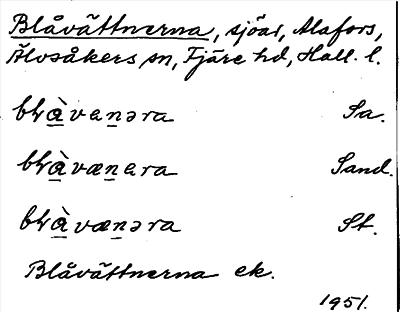 Blåvättnerna, sjöar, Alafors,
Älvsåkers sn, Fjäre hd, Hall. l.
blὰvanəra Sa.
blὰvænera Sand.
blὰvænəra St.
Blåvättnerna ek.
1951.